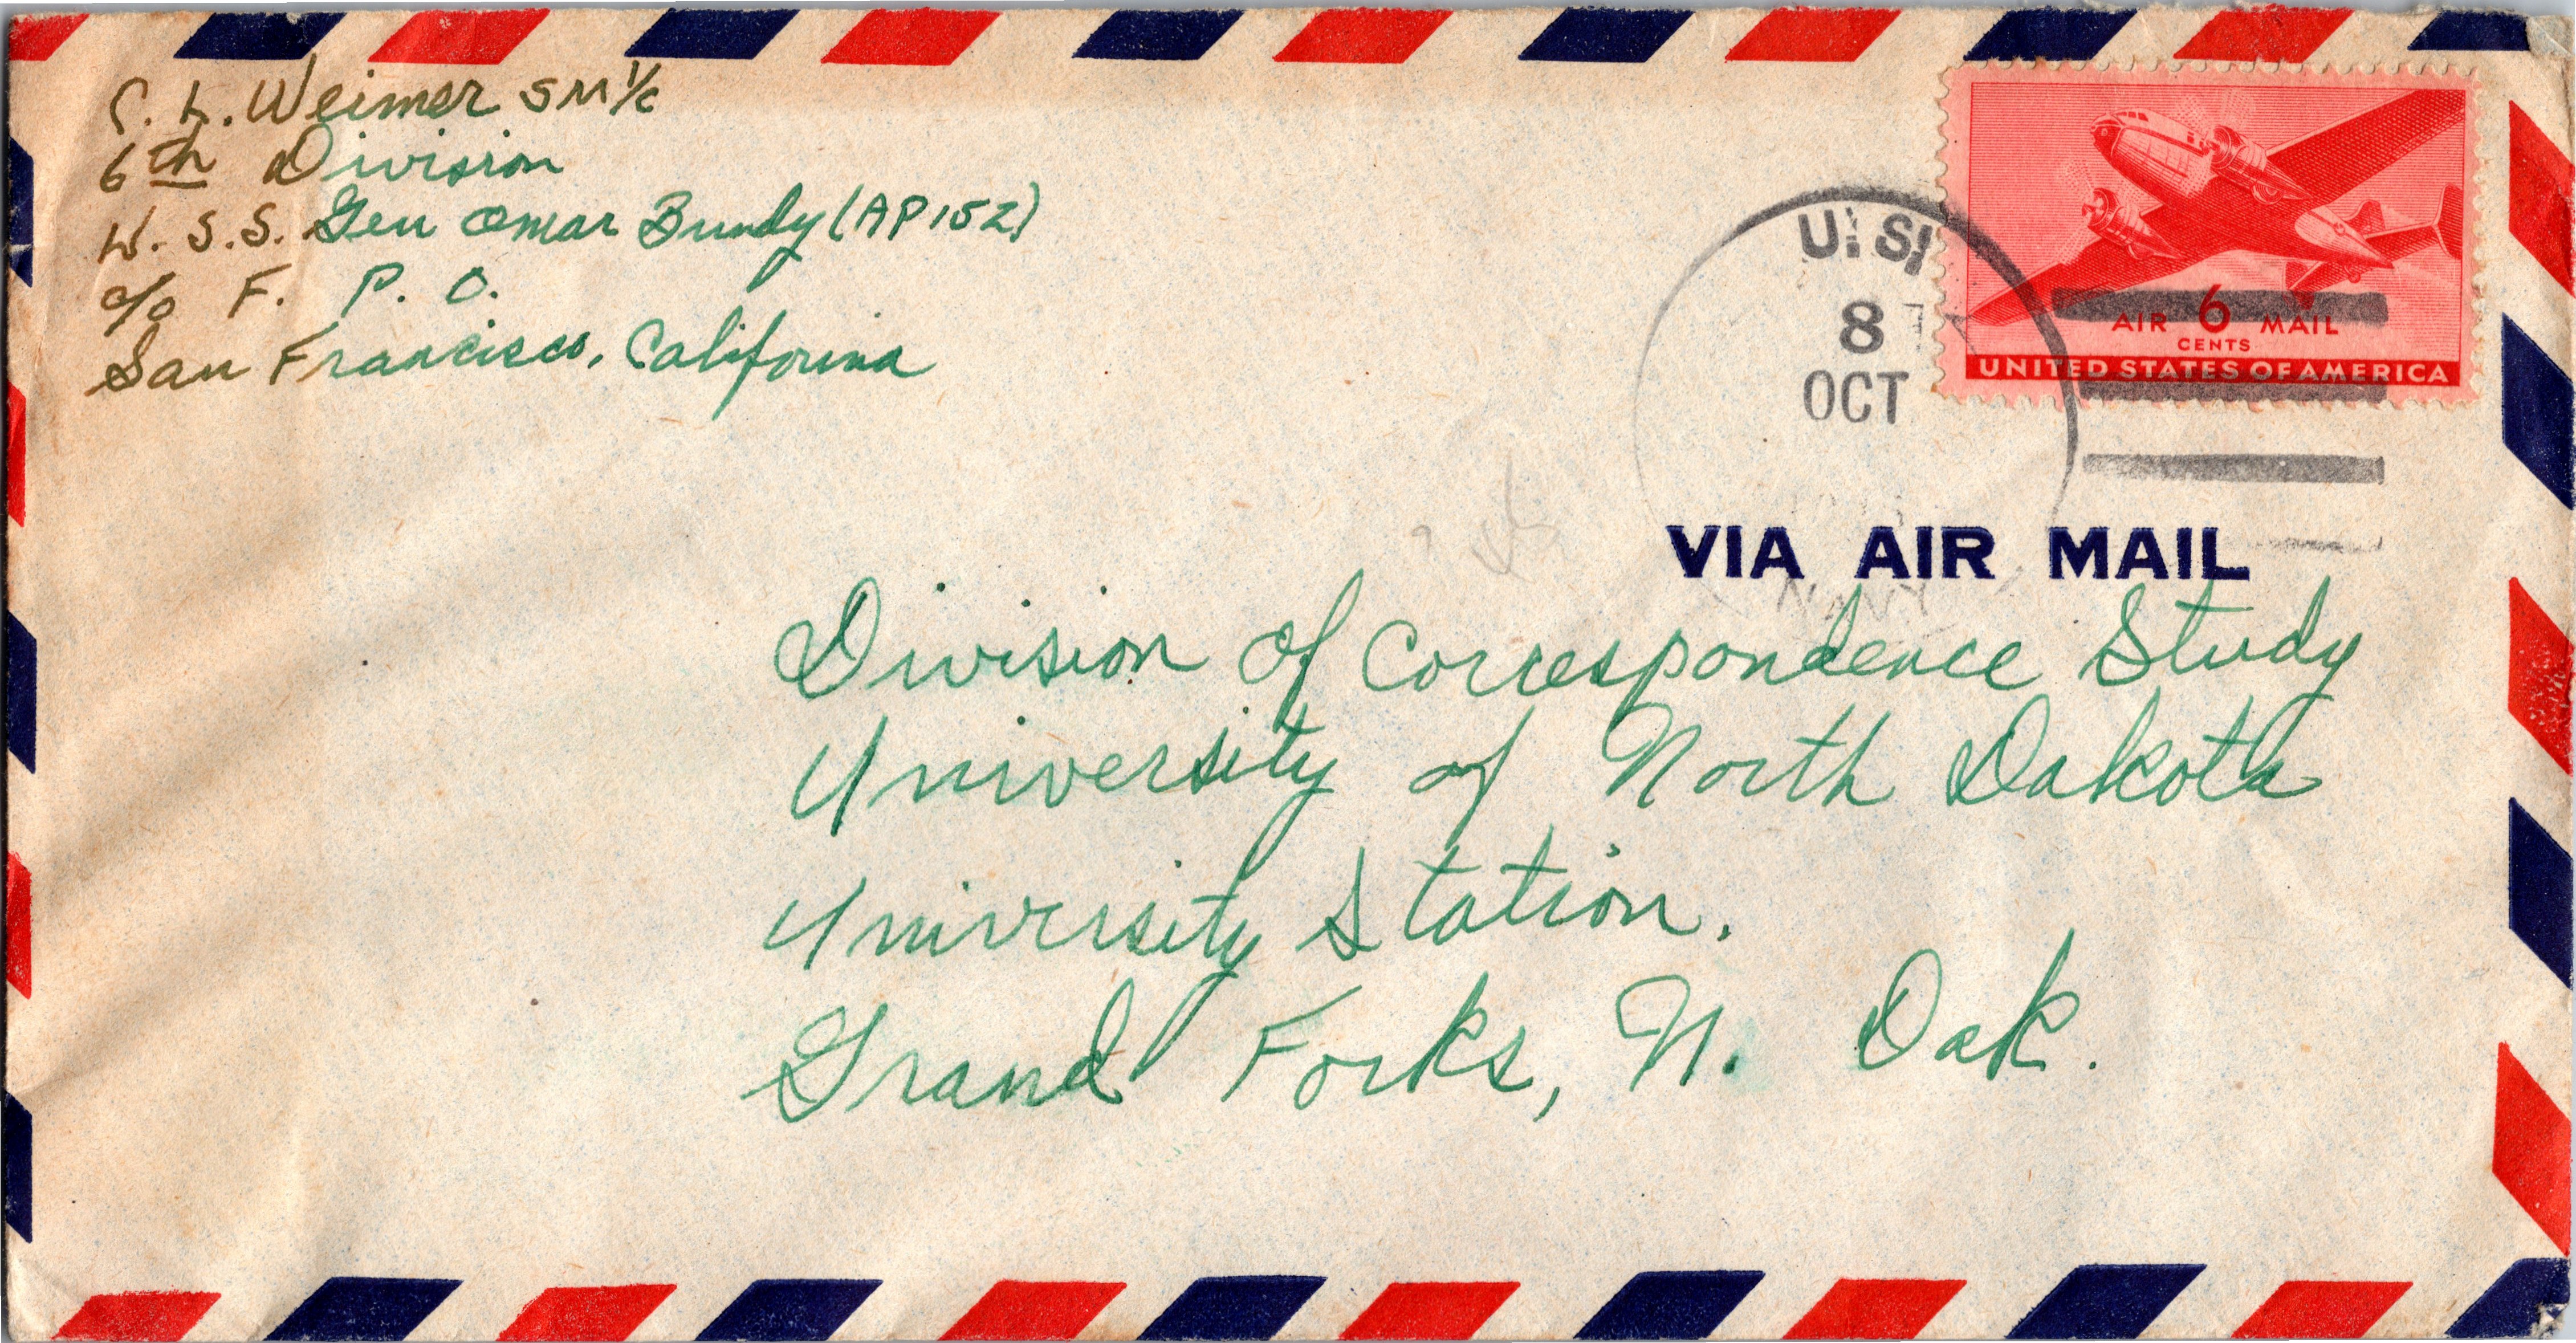 C. L. Weimer SM 1/c
6th Division
U. S. S. Gen Omar Bundy (AP152)
c/o F. P. O.
San Francisco, California
U. S.
8
OCT
AIR 6 MAIL
CENTS
UNITED STATES OF AMERICA
VIA AIR MAIL
NAVY
Division of Correspondence Study
University of North Dakota
University Station.
Grand Forks, N. Dak.